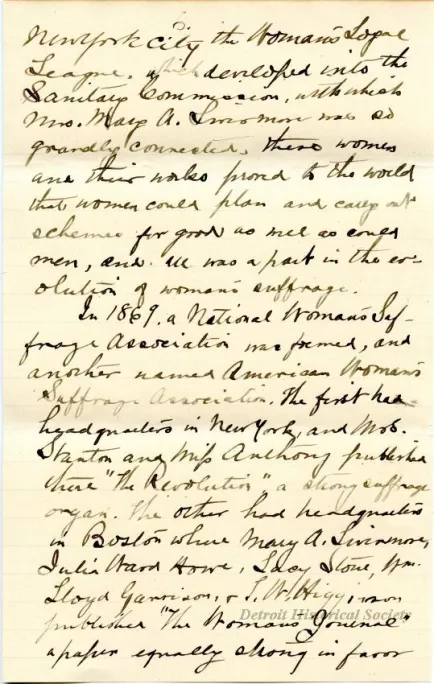 New York City the Woman's Logal
League, which developed into the
Sanitary Commission, with which
Mrs. Mary A. Livermore was so
grandly connected, these women
and their works proved to the world
that women could plan and carry out
schemes for good as well as could
men, and all was a part in the ev-
olution of woman's suffrage.
In 1869, a National Woman's Suf-
frage Association was formed, and
another named American Woman's
Suffrage Association. The first had
headquarters in New York, and Mrs.
Stanton and Miss Anthony published
there "The Revolution" a strong suffrage
organ. The other had headquarters
in Boston where Mary A. Livermore,
Julia Ward Howe, Lucy Stone, Wm.
Lloyd Garrison, & T. W. Higginson
published "The Woman's Journal"
a paper equally strong in favor
Detroit Historical Society